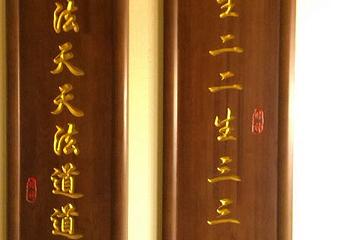 生二二生三三
法天天法道道